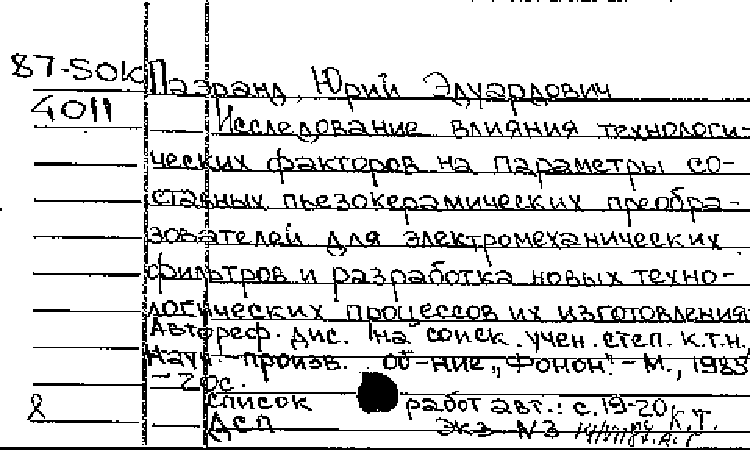 87-5оk Паэранд, Юрий Эдуардович
4011 Исследование влияния технологи-
ческих факторов на параметры со-
ставных пьезокерамических преобра-
зователей для электромеханических
фильтров и разработка новых техно-
логических процессов их изготовления
Автореф. дис. на соиск. учен. степ. к.т.н.
Науч.-произв. об-ние „Фонон". - М., 1985
- 20с.
Список работ авт.: с. 19-20
ДСП Экз N3 К.Т.